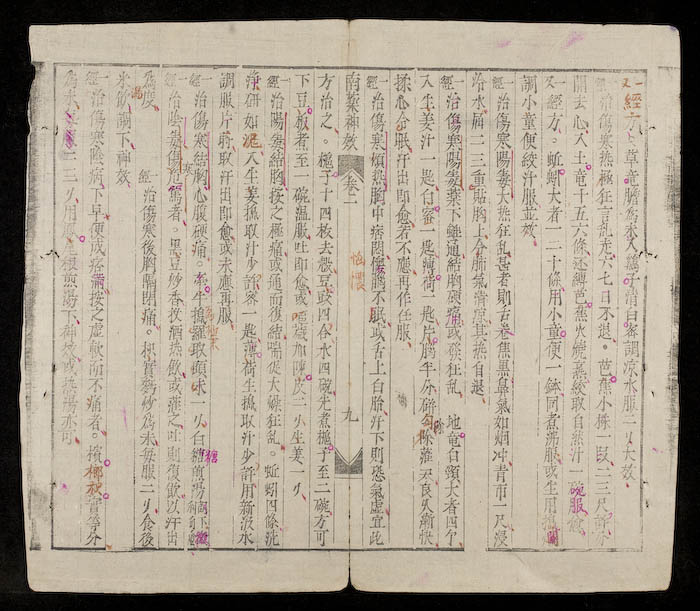 又經方 草竜膽為末入鷄子清白蜜調凉水服二刄大效
一治傷寒熱極狂言乱走六七日不退。芭蕉小株一
開去心入土竜十五六條还縛芭蕉火燒熟絞取自然汁一碗服愈
又一經方。蚯蚓大者一二十條用小童便一鉢同煮沸服或生用
調小童便絞汁服並效
經一治傷寒陽毒大热狂乱甚者則舌卷焦黒鼻氣如烟冲青布一尺浸
冷水届二三重貼胸上令肺氣清凉其热自退
經一治傷寒陽毒藥下雖通結胸硬痛或發狂乱 地竜白頸大者四个
入生姜汁一匙白蜜一匙薄荷一匙片腦半分研勻
揉心令臥汗出即愈若不應再作任服
經一治傷寒煩热胸中痞悶懊憹不眠或舌上白胎汗下則恐氣虚宜此
南藥神效 卷二 九
恼憹
方治之。梔子十四枚去殼豆豉四合水四碗先煮梔子至二碗方可
下豆豉煮至一碗温服吐即愈或嘔 加陳皮二刄生姜一刄
經一治陽毒結胸按之極痛或通而復結喘促大燥狂乱。蚯蚓四條洗
净研如泥入生姜搗取汁少許蜜一匙薄荷生搗取汁少許用新汲水
調服片時取汗出即愈或未應再服
經一治傷寒結胸心腹硬痛。牽牛搗羅取頭末一刄白糖煎湯調下
經一治陰毒傷寒危篤者。黒豆炒香投酒热飲或灌之吐則復飲以汗出
為度 經一治傷寒後胸膈閉痛。枳實麩炒為末每服二刄食後
米飲調下神效
經一治傷寒陰病下早便成痞滿按之虚軟而不痛者。檳榔枳實等分
為末 二三刄用 煎湯下神效或热湯亦可